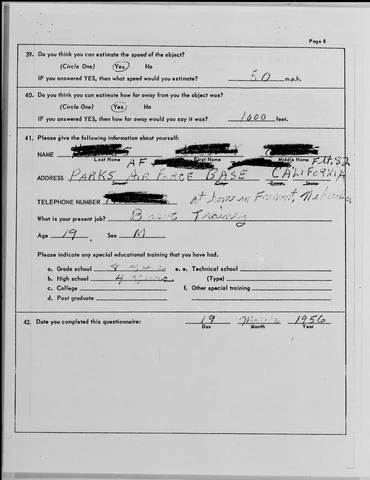 Page 8
39. Do you think you can estimate the speed of the object?
(Circle One) Yes No
IF you answered YES, then what speed would you estimate? 50 m.p.h.
40. Do you think you can estimate how far away from you the object was?
(Circle One) Yes No
IF you answered YES, then how far away would you say it was? 1000 feet.
41. Please give the following information about yourself:
NAME
Last Name First Name Middle Name
AF Flt. 82
ADDRESS PARKS AIR FORCE BASE CALIFORNIA
Street City Zone State
TELEPHONE NUMBER at home in Fremont, Nebraska
What is your present job? Basic Training
Age 19 Sex M
Please indicate any special educational training that you have had.
a. Grade school 8 Years e. e. Technical school
b. High school 4 Years (Type)
c. College f. Other special training
d. Post graduate
42. Date you completed this questionnaire: 19 March 1956
Day Month Year